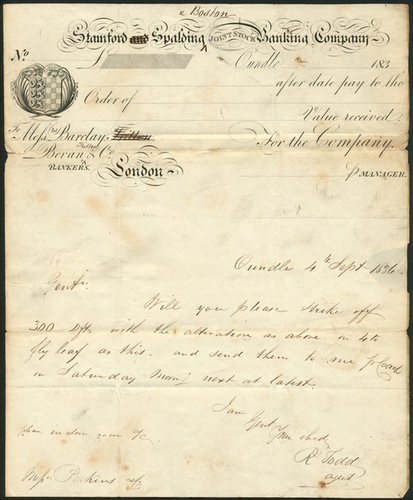 & Boston
Stamford and Spalding JOINT STOCK Banking Company
No
£ Oundle 183
after date pay to the
Order of
Value received
To Messrs Barclay, Tritton
Tritton
Bevan & Co
BANKERS.
London
For the Company
p MANAGER.
Oundle 4th Sept 1836
Gentn
Will you please strike off
300 Dfts with the alteration as above on 4to
fly leaf as this. and send them to me p Coach
on Saturday Morng next at latest.
I am Gent
Your obed
R Todd
agent
please enclose your a/c
Messrs Perkins &c